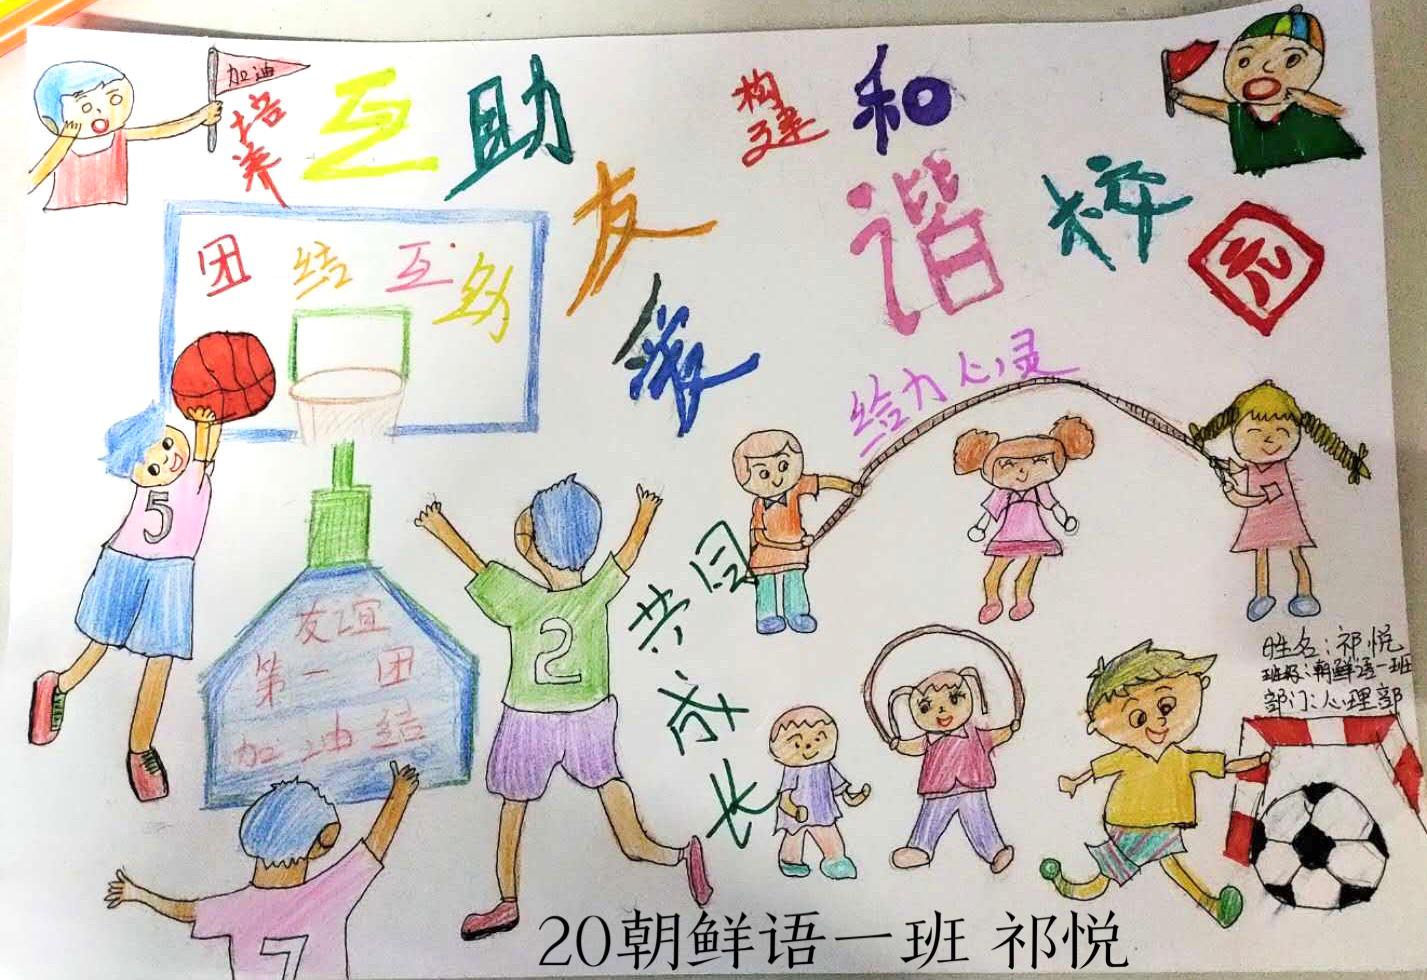 加油
培养
互助
友爱
构建
和谐校园
团结互助
给力心灵
友谊
第一团
加油结
共同
成长
姓名:祁悦
班级:朝鲜语一班
部门:心理部
5
2
7
20朝鲜语一班 祁悦